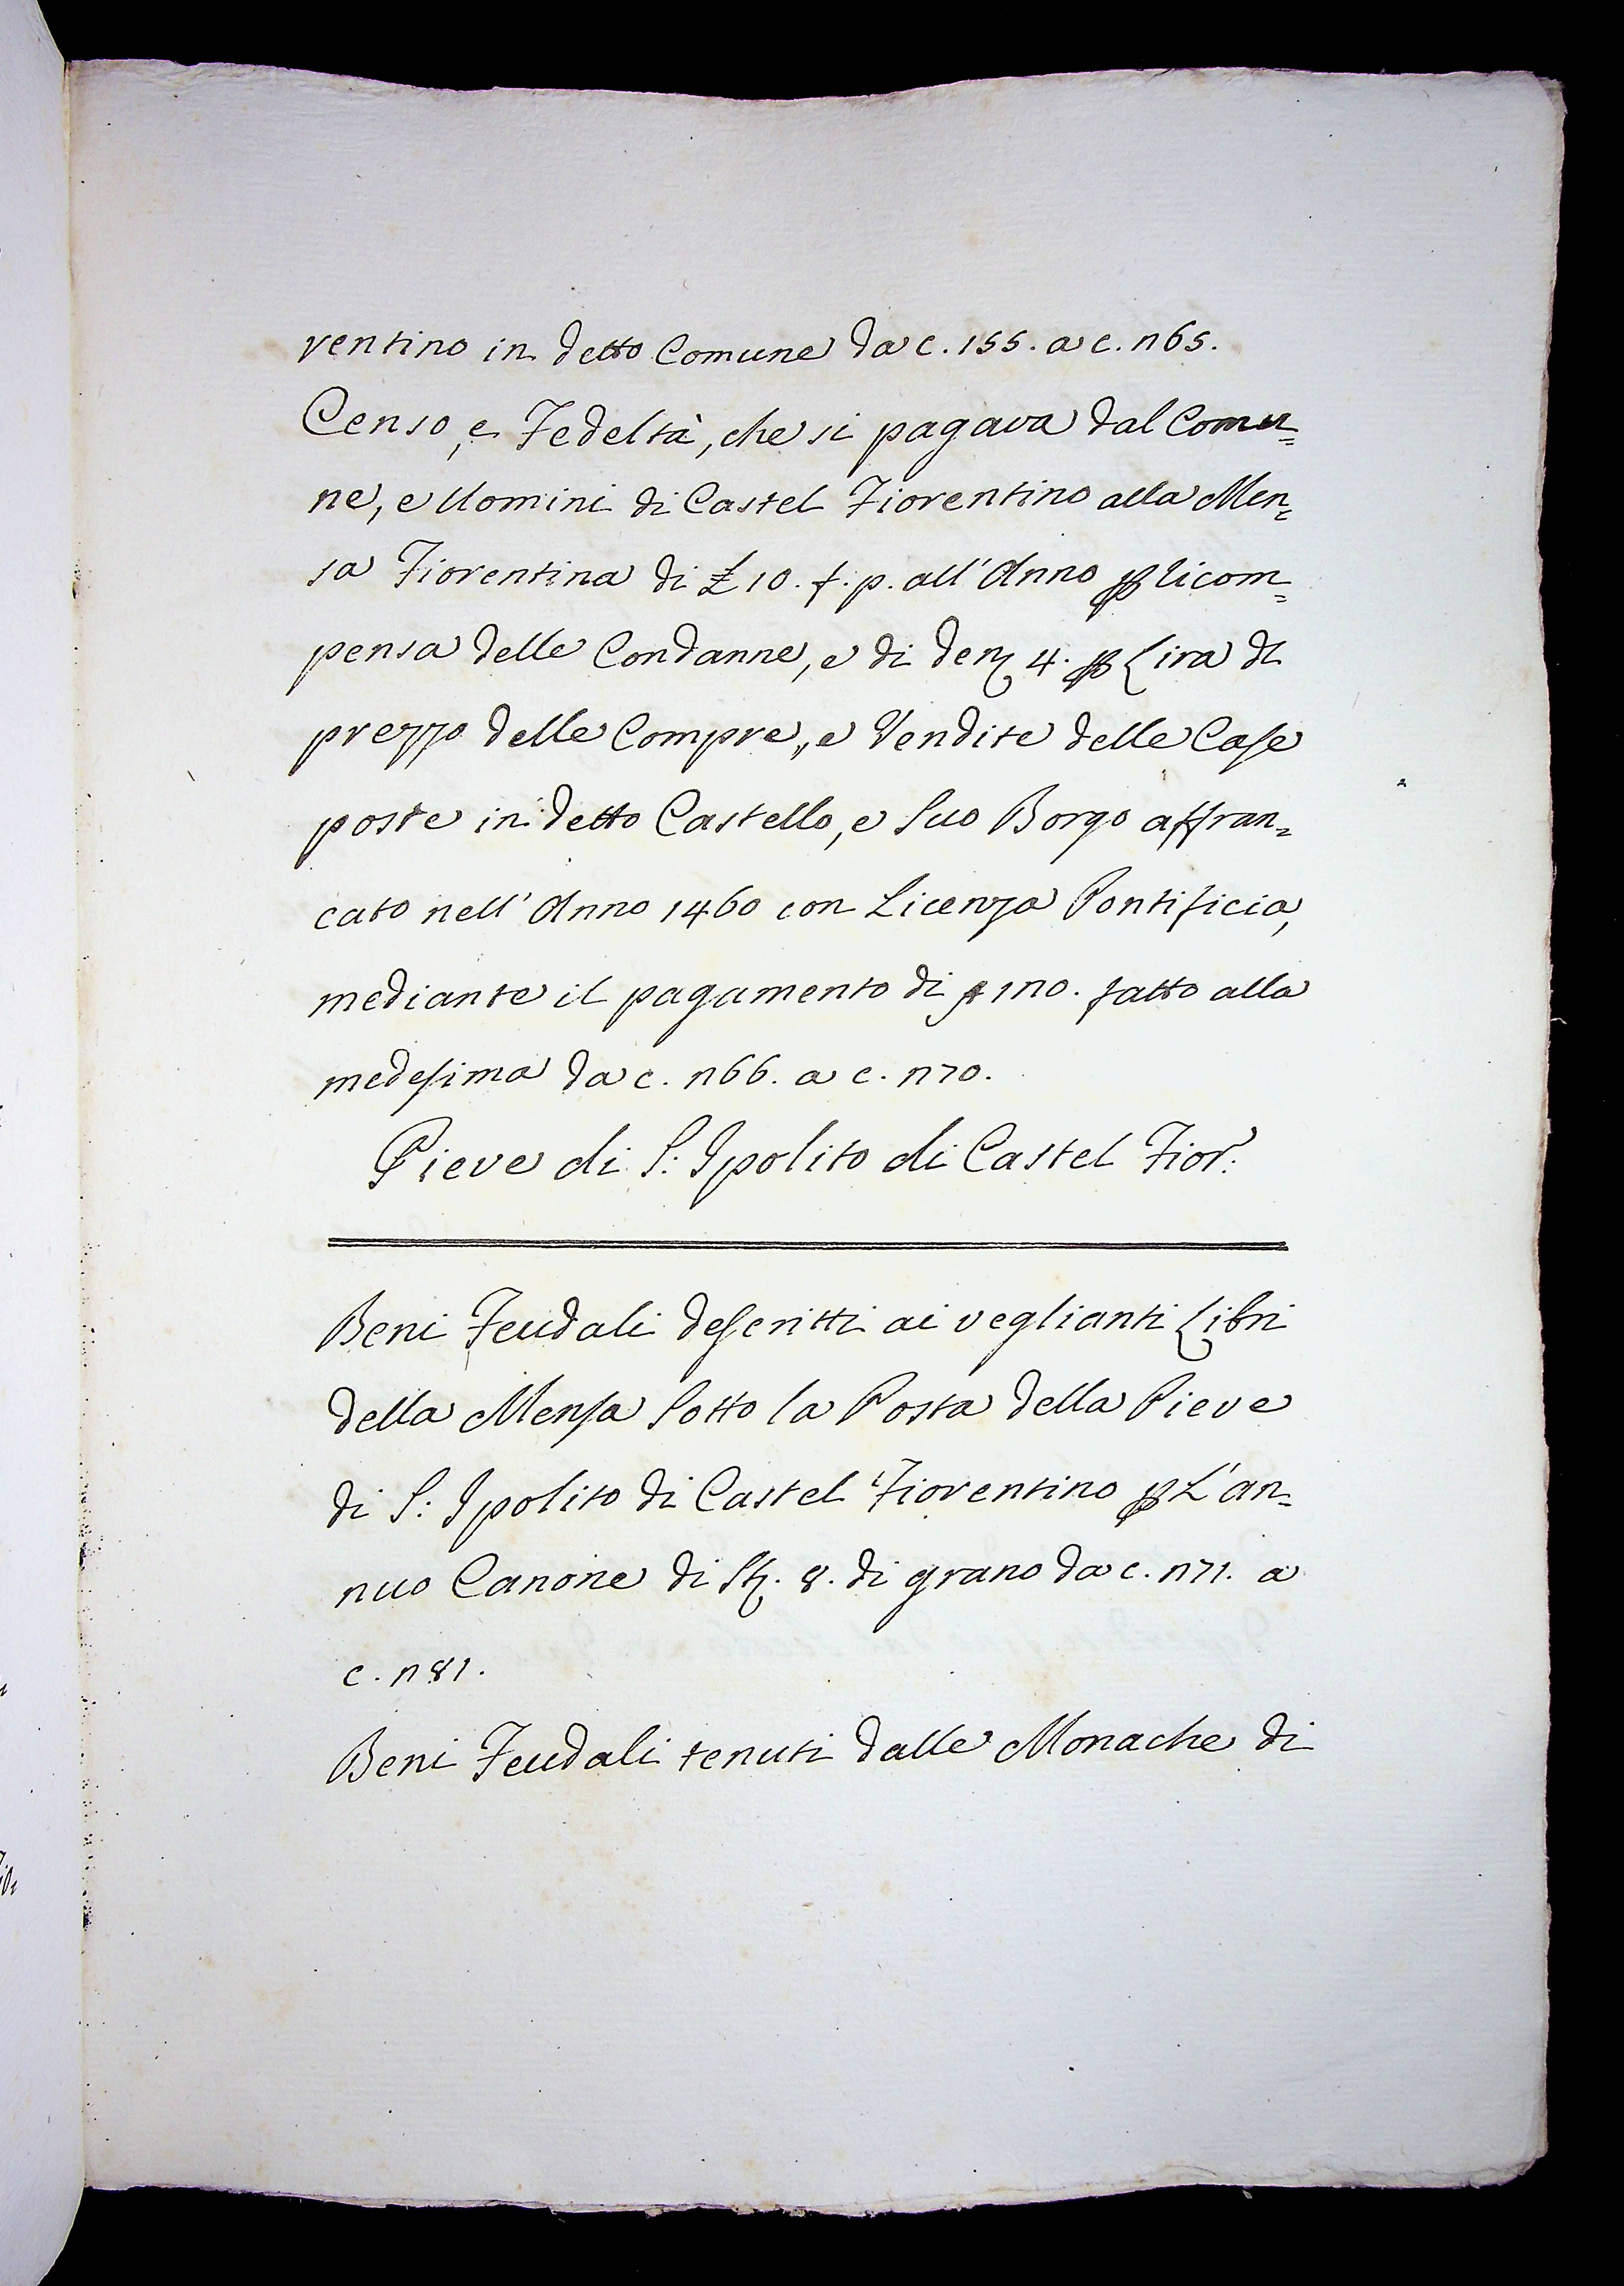 rentino in detto Comune da c. 155. a c. n65.
Censo, e Fedeltà, che si pagava dal Comu=
ne, e Uomini di Castel Fiorentino alla Men=
sa Fiorentina di £ 10. f. p. all'Anno ꝑ licom=
pensa delle Condanne, e di den 4. ꝑ Lira dl
prezzo delle Compre, e Vendite delle Case
poste in detto Castello, e Suo Borgo affran=
cato nell'Anno 1460 con Licenza Pontificia,
mediante il pagamento di ƒ 1no. fatto alla
medesima da c. n66. a c. n70.
Pieve di S: Ipolito di Castel Fior:
Beni Feudali descritti ai veglianti Libri
della Mensa Sotto la Posta della Pieve
di S: Ipolito di Castel Fiorentino ꝑ L'an=
nuo Canone di St. 8. di grano da c. n71. a
c. n81.
Beni Feudali tenuti dalle Monache di